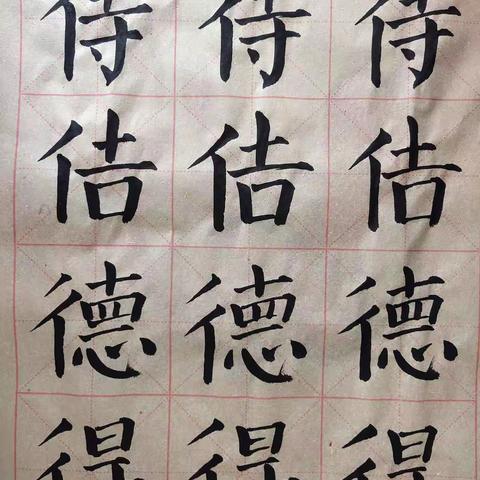 侍侍侍
佶佶佶
德德德
得得得